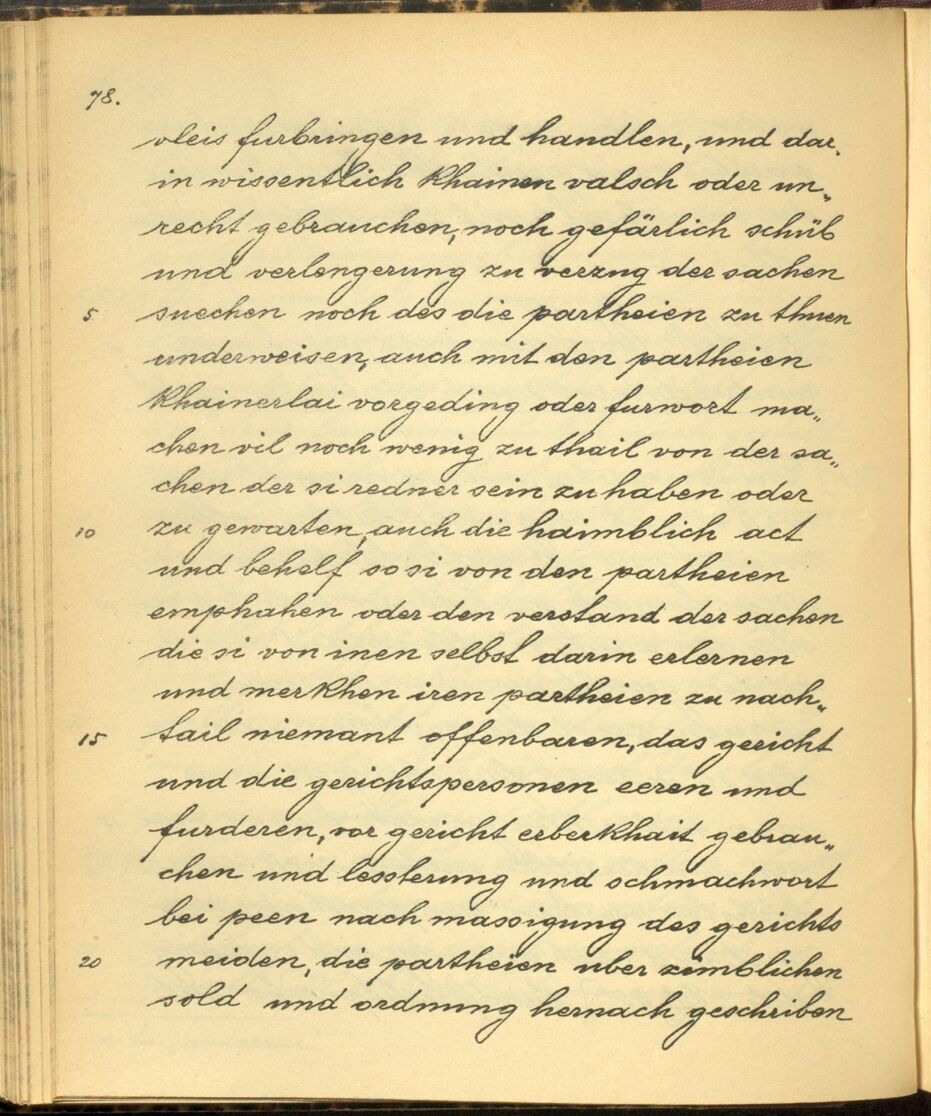 78.
vleis furbringen und handlen, und dar„
in wissentlich khainen valsch oder un„
recht gebrauchen, noch gefärlich schüb
und verlengerung zu verzug der sachen
5 suechen noch des die partheien zu thuen
underweisen, auch mit den partheien
khainerlai vorgeding oder furwort ma„
chen vil noch wenig zu thail von der sa„
chen der si redner sein zu haben oder
10 zu gewarten, auch die haimblich act
und behelf so si von den partheien
emphahen oder den verstand der sachen
die si von inen selbst darin erlernen
und merkhen iren partheien zu nach„
15 tail niemant offenbaren, das gericht
und die gerichtspersonen eeren und
furderen, vor gericht erberkhait gebrau„
chen und lessterung und schmachwort
bei peen nach massigung des gerichts
20 meiden, die partheien uber zimblichen
sold und ordnung hernach geschriben